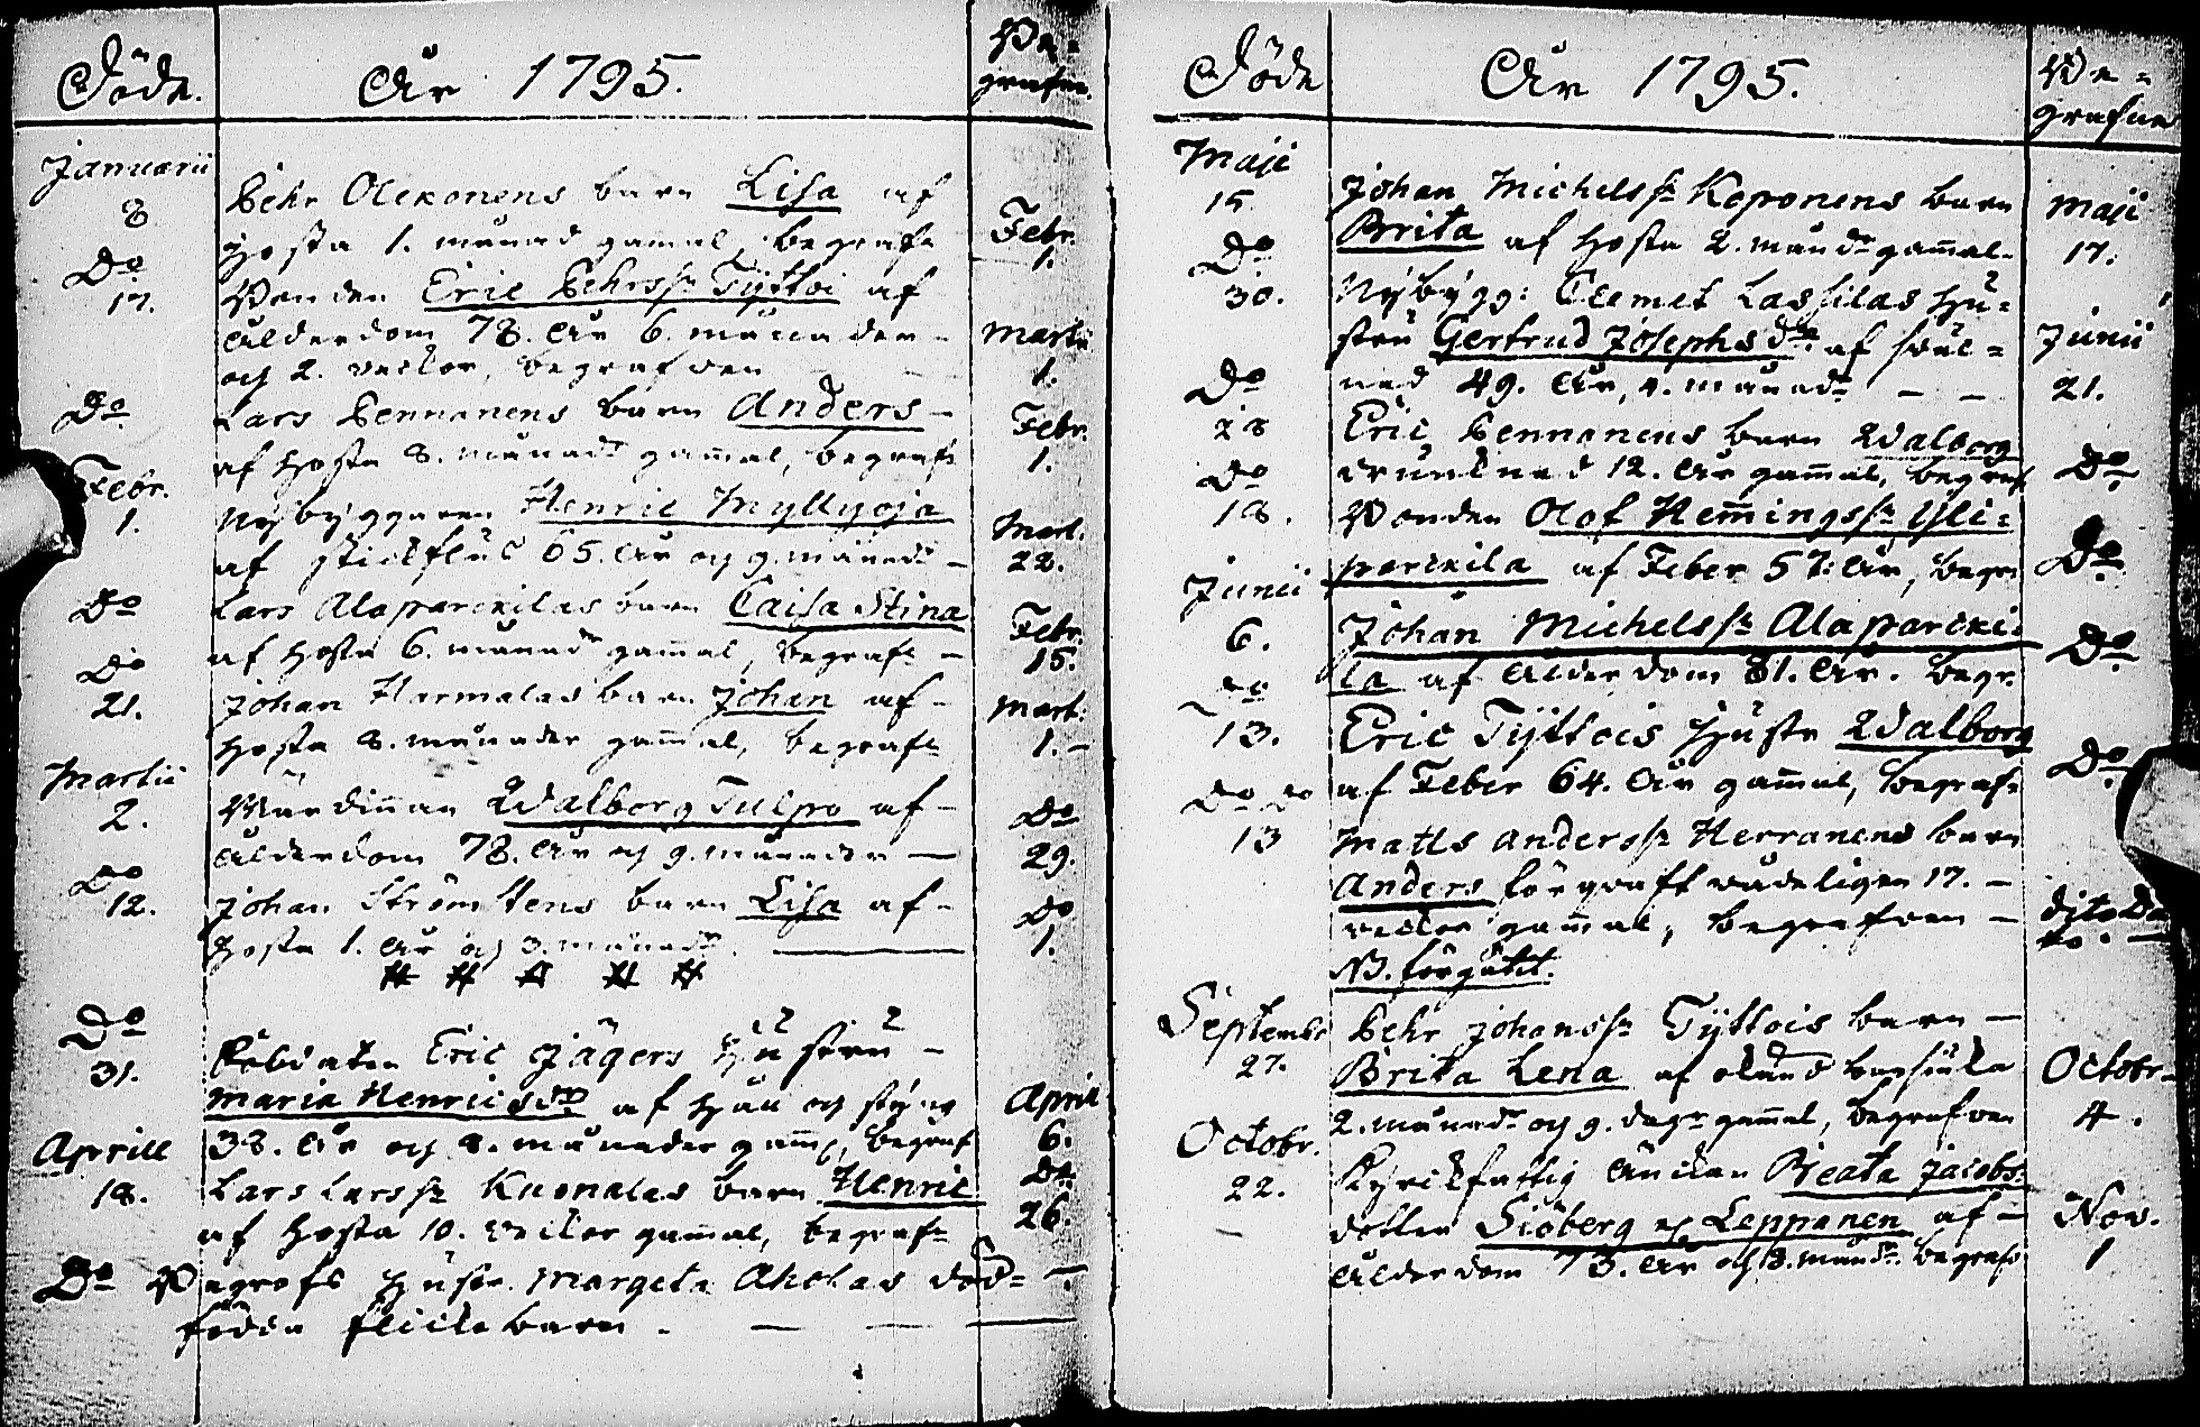 Döde. År 1795. Be=
grafne.
Januarii
8 Pehr Olckonens barn Lisa af
hosta 1. månad gamal, begrafn Febr. 1.
Do 17. Bonden Eric Pehrsson Tyttoi af
ålderdom 78. år 6. månader Martii
och 2. veckor, begrafven 1.
Do Lars Pennanens barn Anders - Febr.
af hosta 8. månadr gamal, begrafn 1.
Febr. 1. Nybyggaren Henric Myllyoja Mart.
af stickfluß 65. år och 9. månadr - 22.
Do Lars Alaparckilas barn Caisa Stina Febr.
af hosta 6. månadr gamal, begrafn - 15.
Do 21. Johan Harmalas barn Johan af - Mart.
hosta 8. månader gamal, begrafn 1. -
Martii
2. Värdinnan Walborg Tulpo af - Do
ålderdom 78. år och 9. månader - 29.
Do 12. Johan Strömstens barn Lisa af - Do
hosta 1. år och 3. månadr. 1.
Do 31. Soldaten Eric Jägers hustru -
Maria Henricsdr af håll och styng April
38. år och 8. månader gaml, begraf 6.
Aprill
18. Lars Larsson Kuonalas barn Henric Do
af hosta 10. veckor gamal, begrafn 26.
Do Begrofs hustr. Margeta Aholas död=
födda flickebarn.
Döde År 1795. Be=
grafne
Maji
15 Johan Michelsson Koponens barn Maji
Brita af hosta 2. månadr gamal. 17.
Do 30. Nybygg: Clemet Lassilas hu=
stru Gertrud Josephsdr af svul= Junii
nad 49. år, 4. månadr - - 21.
Do 28 Eric Pennanens barn Walborg
drunknad 12. år gamal, begraf Do
Do 18. Bonden Olof Hemmingsson Yli=
parckila af Feber 57. år, begr. Do
Junii
6. Johan Michelsson Alaparcki=
la af ålderdom 81. år. begr. Do
Do 13. Eric Tyttois hustr Walborg
af Feber 64. år gamal, begrafn Do
Do Do
13 Matts Andersson Herranens barn
Anders förqvaft vådeligen 17. -
veckor gamal, begrafven - dito Do
NB. förgätit.
Septembr
27. Pehr Johansson Tyttois barn -
Brita Lena af okänd barnsiuka Octobr.
2. månadr och 9. dagr gamal, begrafven 4.
Octobr.
22. Kyrckfattig änckan Beata Jacobs=
dotter Siöberg och Leppänen af - Nov.
ålderdom 73. år och 8. månadr. begrafn 1